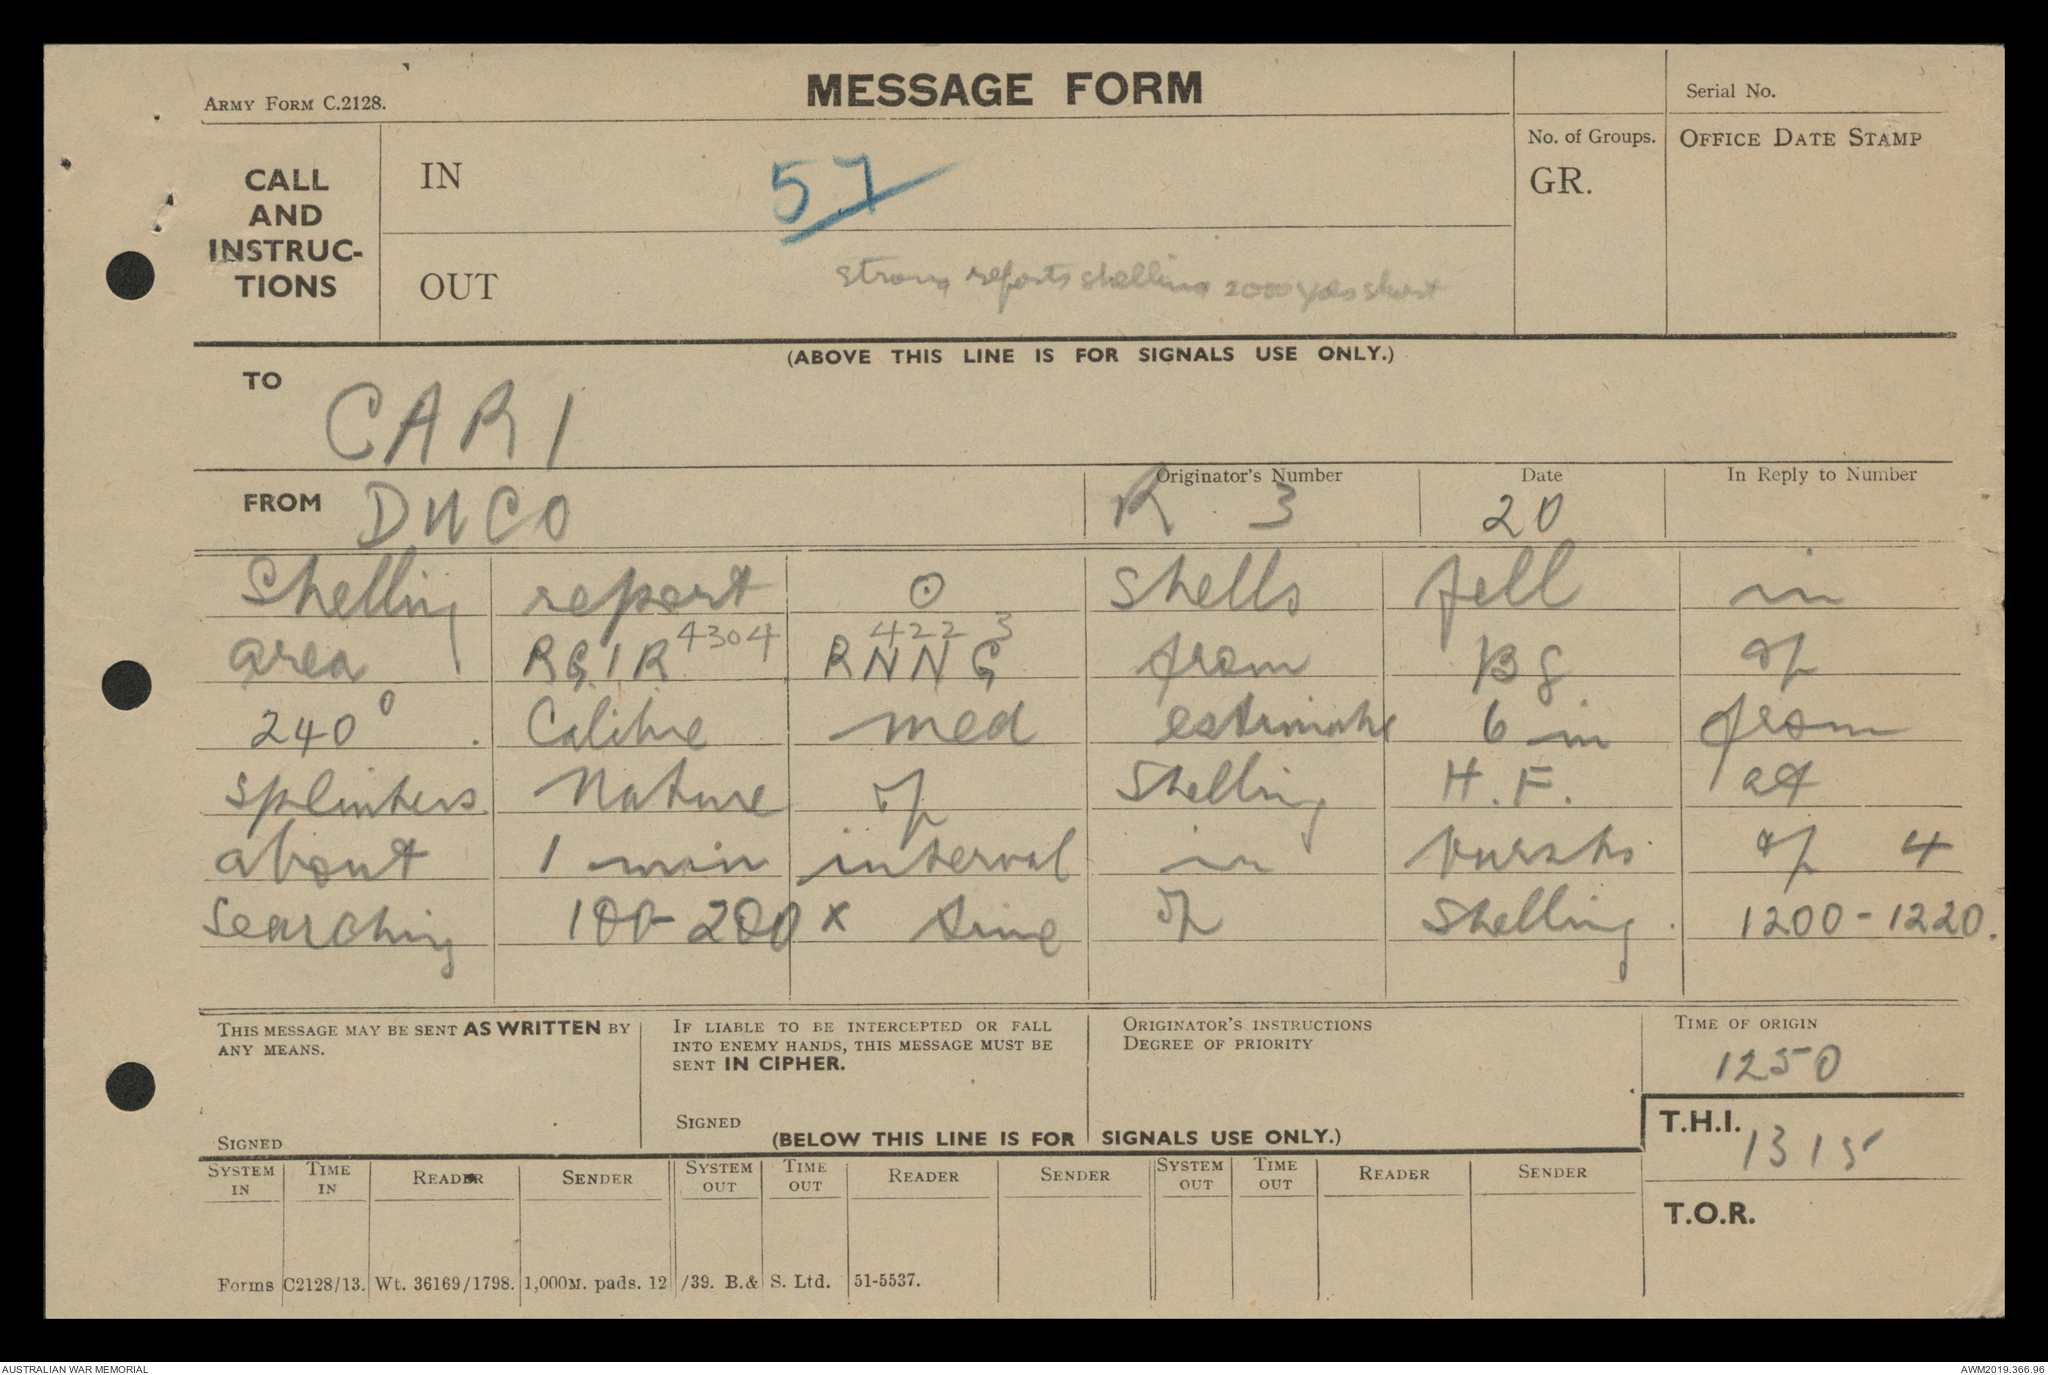 ARMY FORM C.2128.
MESSAGE FORM
Serial No.
CALL AND INSTRUC-TIONS
IN
57
No. of Groups.
GR.
OFFICE DATE STAMP
OUT
Strong reports shelling 2000 yds short
(ABOVE THIS LINE IS FOR SIGNALS USE ONLY.)
TO
CARI
FROM DUCO
Originator's Number
R 3
Date
20
In Reply to Number
Shelling report ⊙ Shells fell in
4304 422 3
area RGIR RNNG from Bg of
240° . Calibre med estimate 6 in from
splinters Nature of Shelling H.F. at
about 1 min interval in bursts of 4
searching 100-200 x time of Shelling. 1200-1220.
THIS MESSAGE MAY BE SENT AS WRITTEN BY ANY MEANS.
SIGNED
IF LIABLE TO BE INTERCEPTED OR FALL INTO ENEMY HANDS, THIS MESSAGE MUST BE SENT IN CIPHER.
SIGNED
ORIGINATOR'S INSTRUCTIONS
DEGREE OF PRIORITY
TIME OF ORIGIN
1250
T.H.I. 1315
(BELOW THIS LINE IS FOR SIGNALS USE ONLY.)
SYSTEM IN TIME IN READER SENDER SYSTEM OUT TIME OUT READER SENDER SYSTEM OUT TIME OUT READER SENDER
T.O.R.
Forms C2128/13. Wt. 36169/1798. 1,000M. pads. 12/39. B.& S. Ltd. 51-5537.
AUSTRALIAN WAR MEMORIAL
AWM2019.366.96